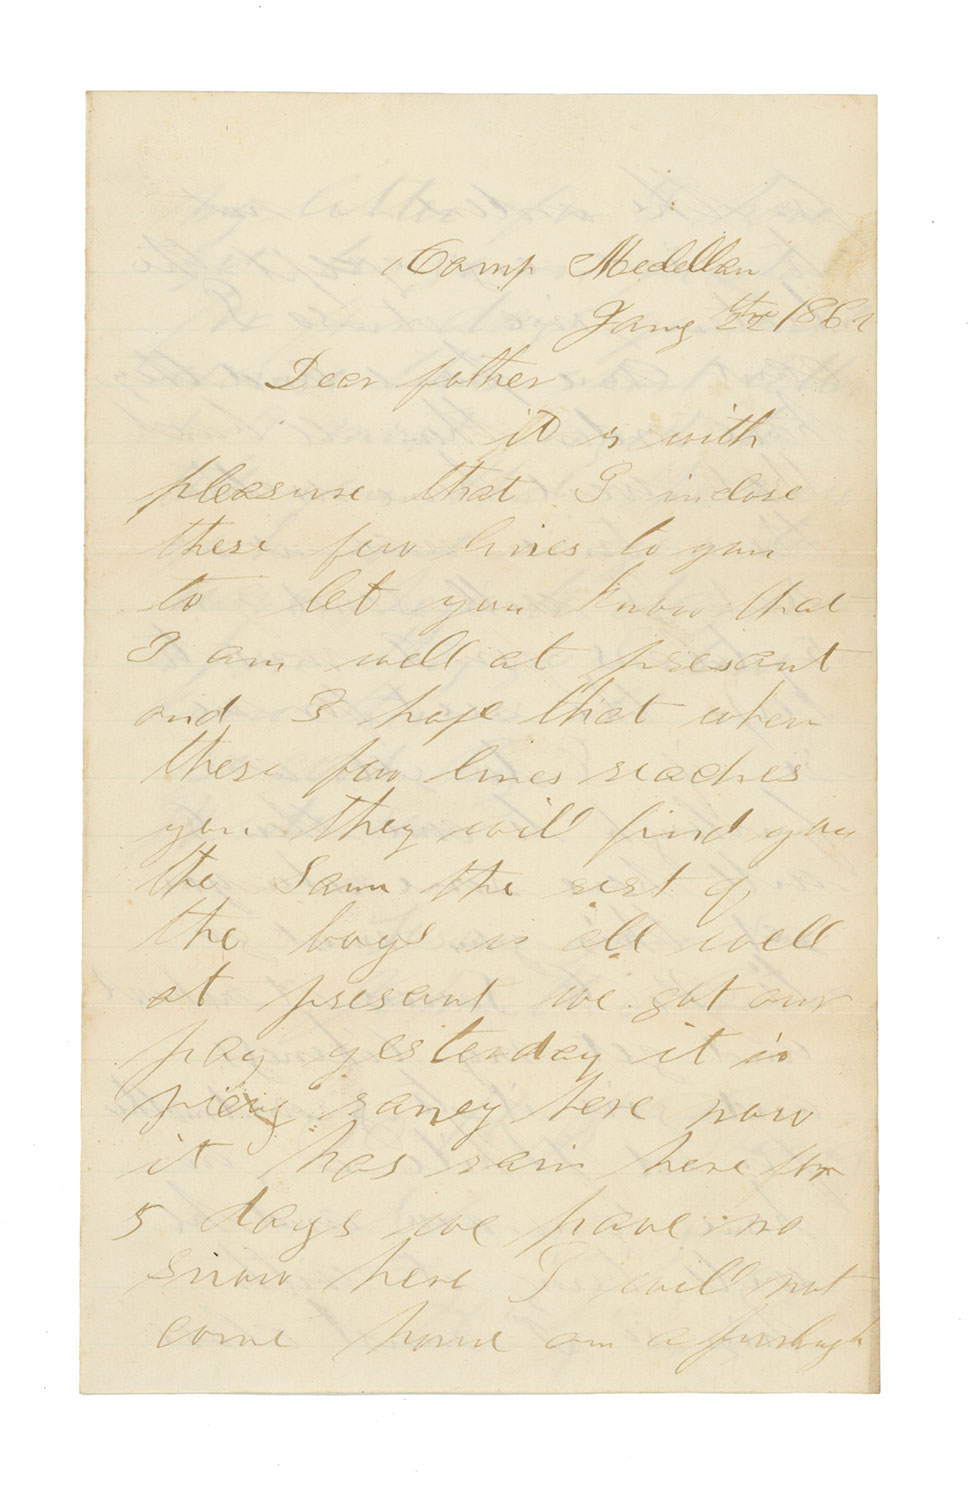 Camp Medellan
Jany 22th 186
Dear father
it is with
pleasure that I inclose
these few lines to you
to let you know that
I am well at presant
and I hope that when
these few lines reaches
you they will find you
the Same the rest of
the boys is all well
at presant we got our
pay yesterday it is
raney here now
it has rain here for
5 days we have no
snow here I will not
come home on a furlugh